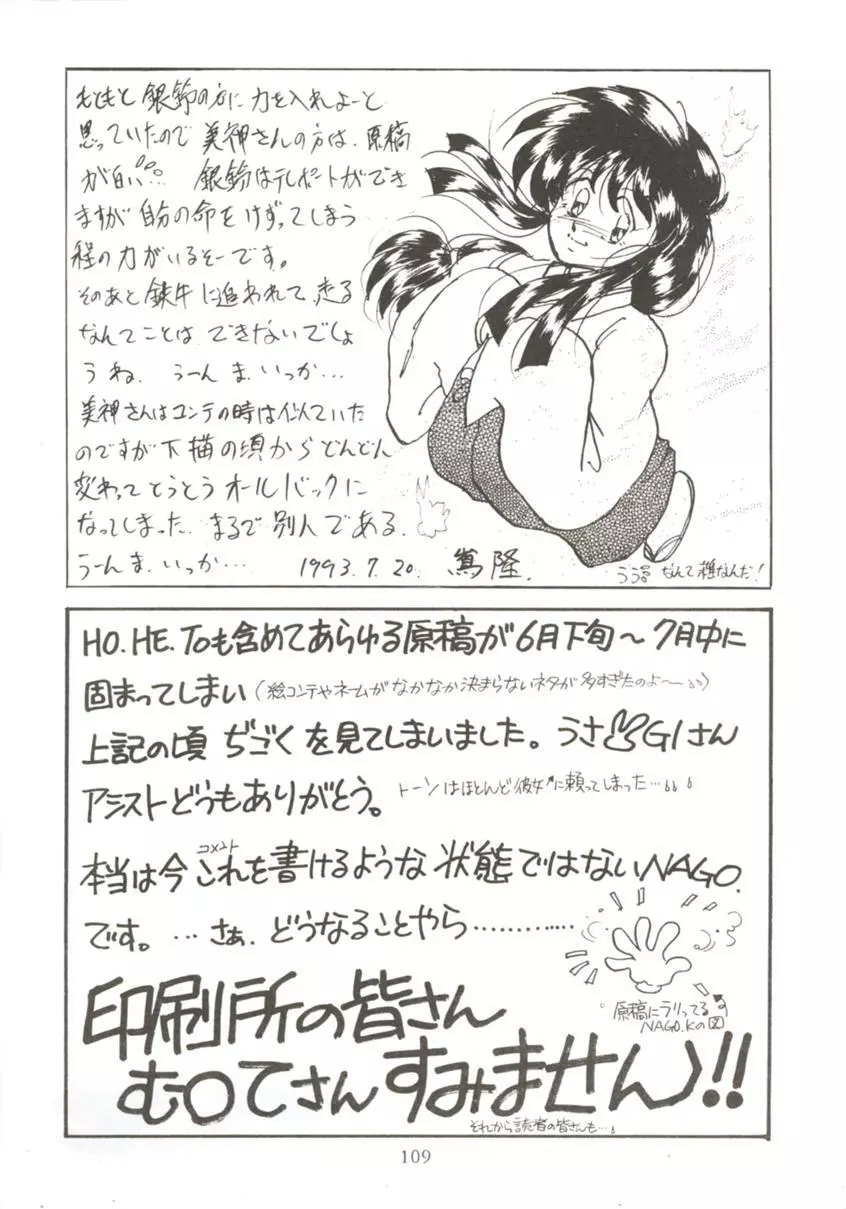 もともと銀鈴の方に力を入れよーと
思っていたので美神さんの方は、原稿
が白い… 銀鈴はテレポートができ
ますが自分の命をけずってしまう
程の力がいるそーです。
そのあと鉄牛に追われて、走る
なんてことは できないでしょ
うね. うーん ま.いっか…
美神さんはコンテの時は似ていた
のですが下描の頃からどんどん
変わってとうとうオールバックに
なってしまった. まるで別人である.
うーん ま.いっか… 1993.7.20. 嵩 隆.
なんて雑なんだ!
HO.HE.Toも含めてあらゆる原稿が6月下旬〜7月中に
固まってしまい(絵コンテやネームがなかなか決まらないネタが多すぎたのよ〜)
上記の頃 ぢごくを見てしまいました。うさGIさん
アシストどうもありがとう。トーンはほとんど彼女に頼ってしまった…
コメント
本当は今これを書けるような状態ではないNAGO.
です。…さぁ.どうなることやら…………
原稿にラリってる
NAGO.Kの図
印刷所の皆さん
む○てさんすみません!!
それから読者の皆さんも…
109